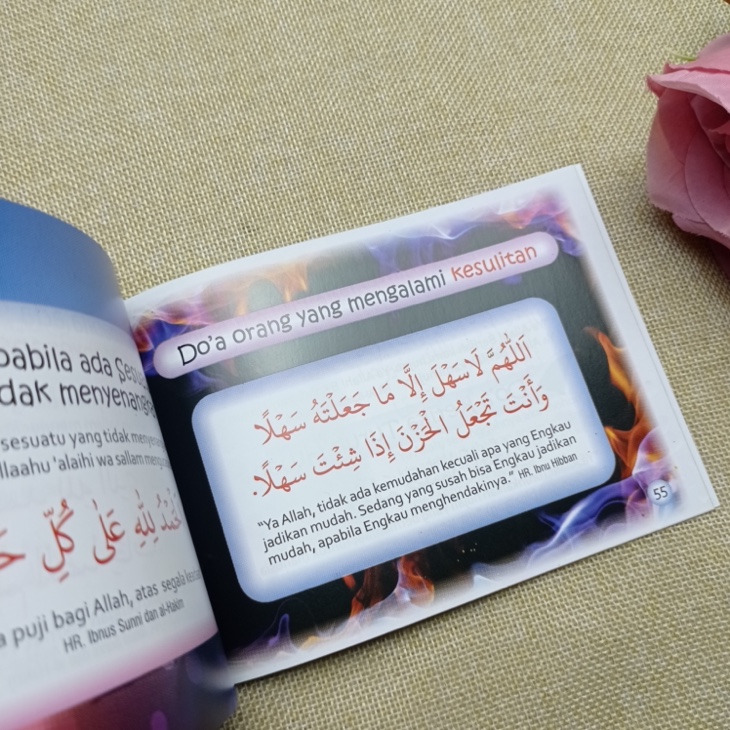 pabila ada Sesu
dak menyenang
sesuatu yang tidak menye
llaahu 'alaihi wa sallam meng
لِلّٰهِ عَلَى كُلِّ
puji bagi Allah, atas segala
HR. Ibnus Sunni dan al-Hakim
Do'a orang yang mengalami kesulitan
اَللّٰهُمَّ لَاسَهْلَ إِلَّا مَا جَعَلْتَهُ سَهْلًا
وَأَنْتَ تَجْعَلُ الْحَزْنَ إِذَا شِئْتَ سَهْلًا.
"Ya Allah, tidak ada kemudahan kecuali apa yang Engkau
jadikan mudah. Sedang yang susah bisa Engkau jadikan
mudah, apabila Engkau menghendakinya." HR. Ibnu Hibban
55